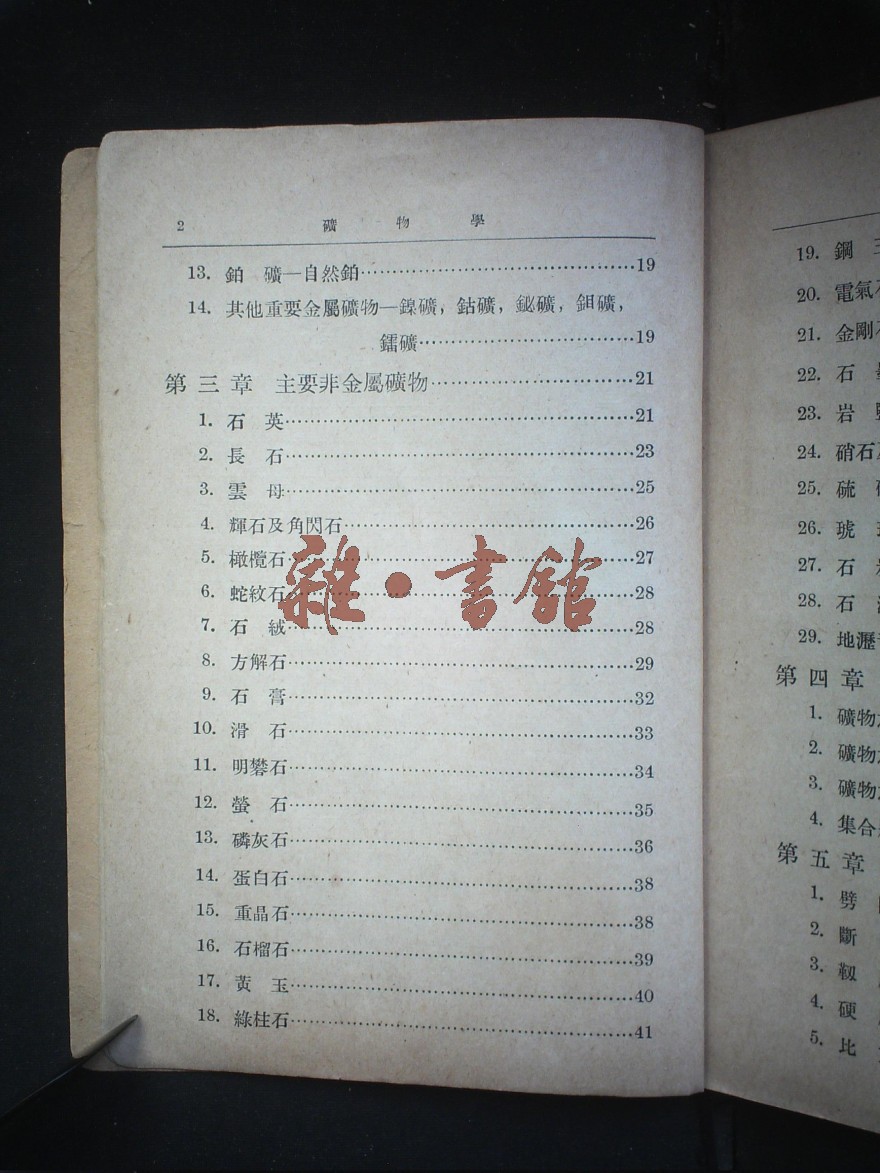 2 礦物學
13. 鉑 礦—自然鉑…………19
14. 其他重要金屬礦物—鎳礦，鈷礦，鉍礦，鉬礦，
鐳礦…………19
第三章 主要非金屬礦物…………21
1. 石 英…………21
2. 長 石…………23
3. 雲 母…………25
4. 輝石及角閃石…………26
5. 橄欖石…………27
6. 蛇紋石…………28
7. 石 絨…………28
8. 方解石…………29
9. 石 膏…………32
10. 滑 石…………33
11. 明礬石…………34
12. 螢 石…………35
13. 磷灰石…………36
14. 蛋白石…………38
15. 重晶石…………38
16. 石榴石…………39
17. 黃 玉…………40
18. 綠柱石…………41
雜·書館
19. 鋼
20. 電氣
21. 金剛
22. 石
23. 岩
24. 硝石
25. 硫
26. 琥
27. 石
28. 石
29. 地瀝
第四章
1. 礦物
2. 礦物
3. 礦物
4. 集合
第五章
1. 劈
2. 斷
3. 韌
4. 硬
5. 比